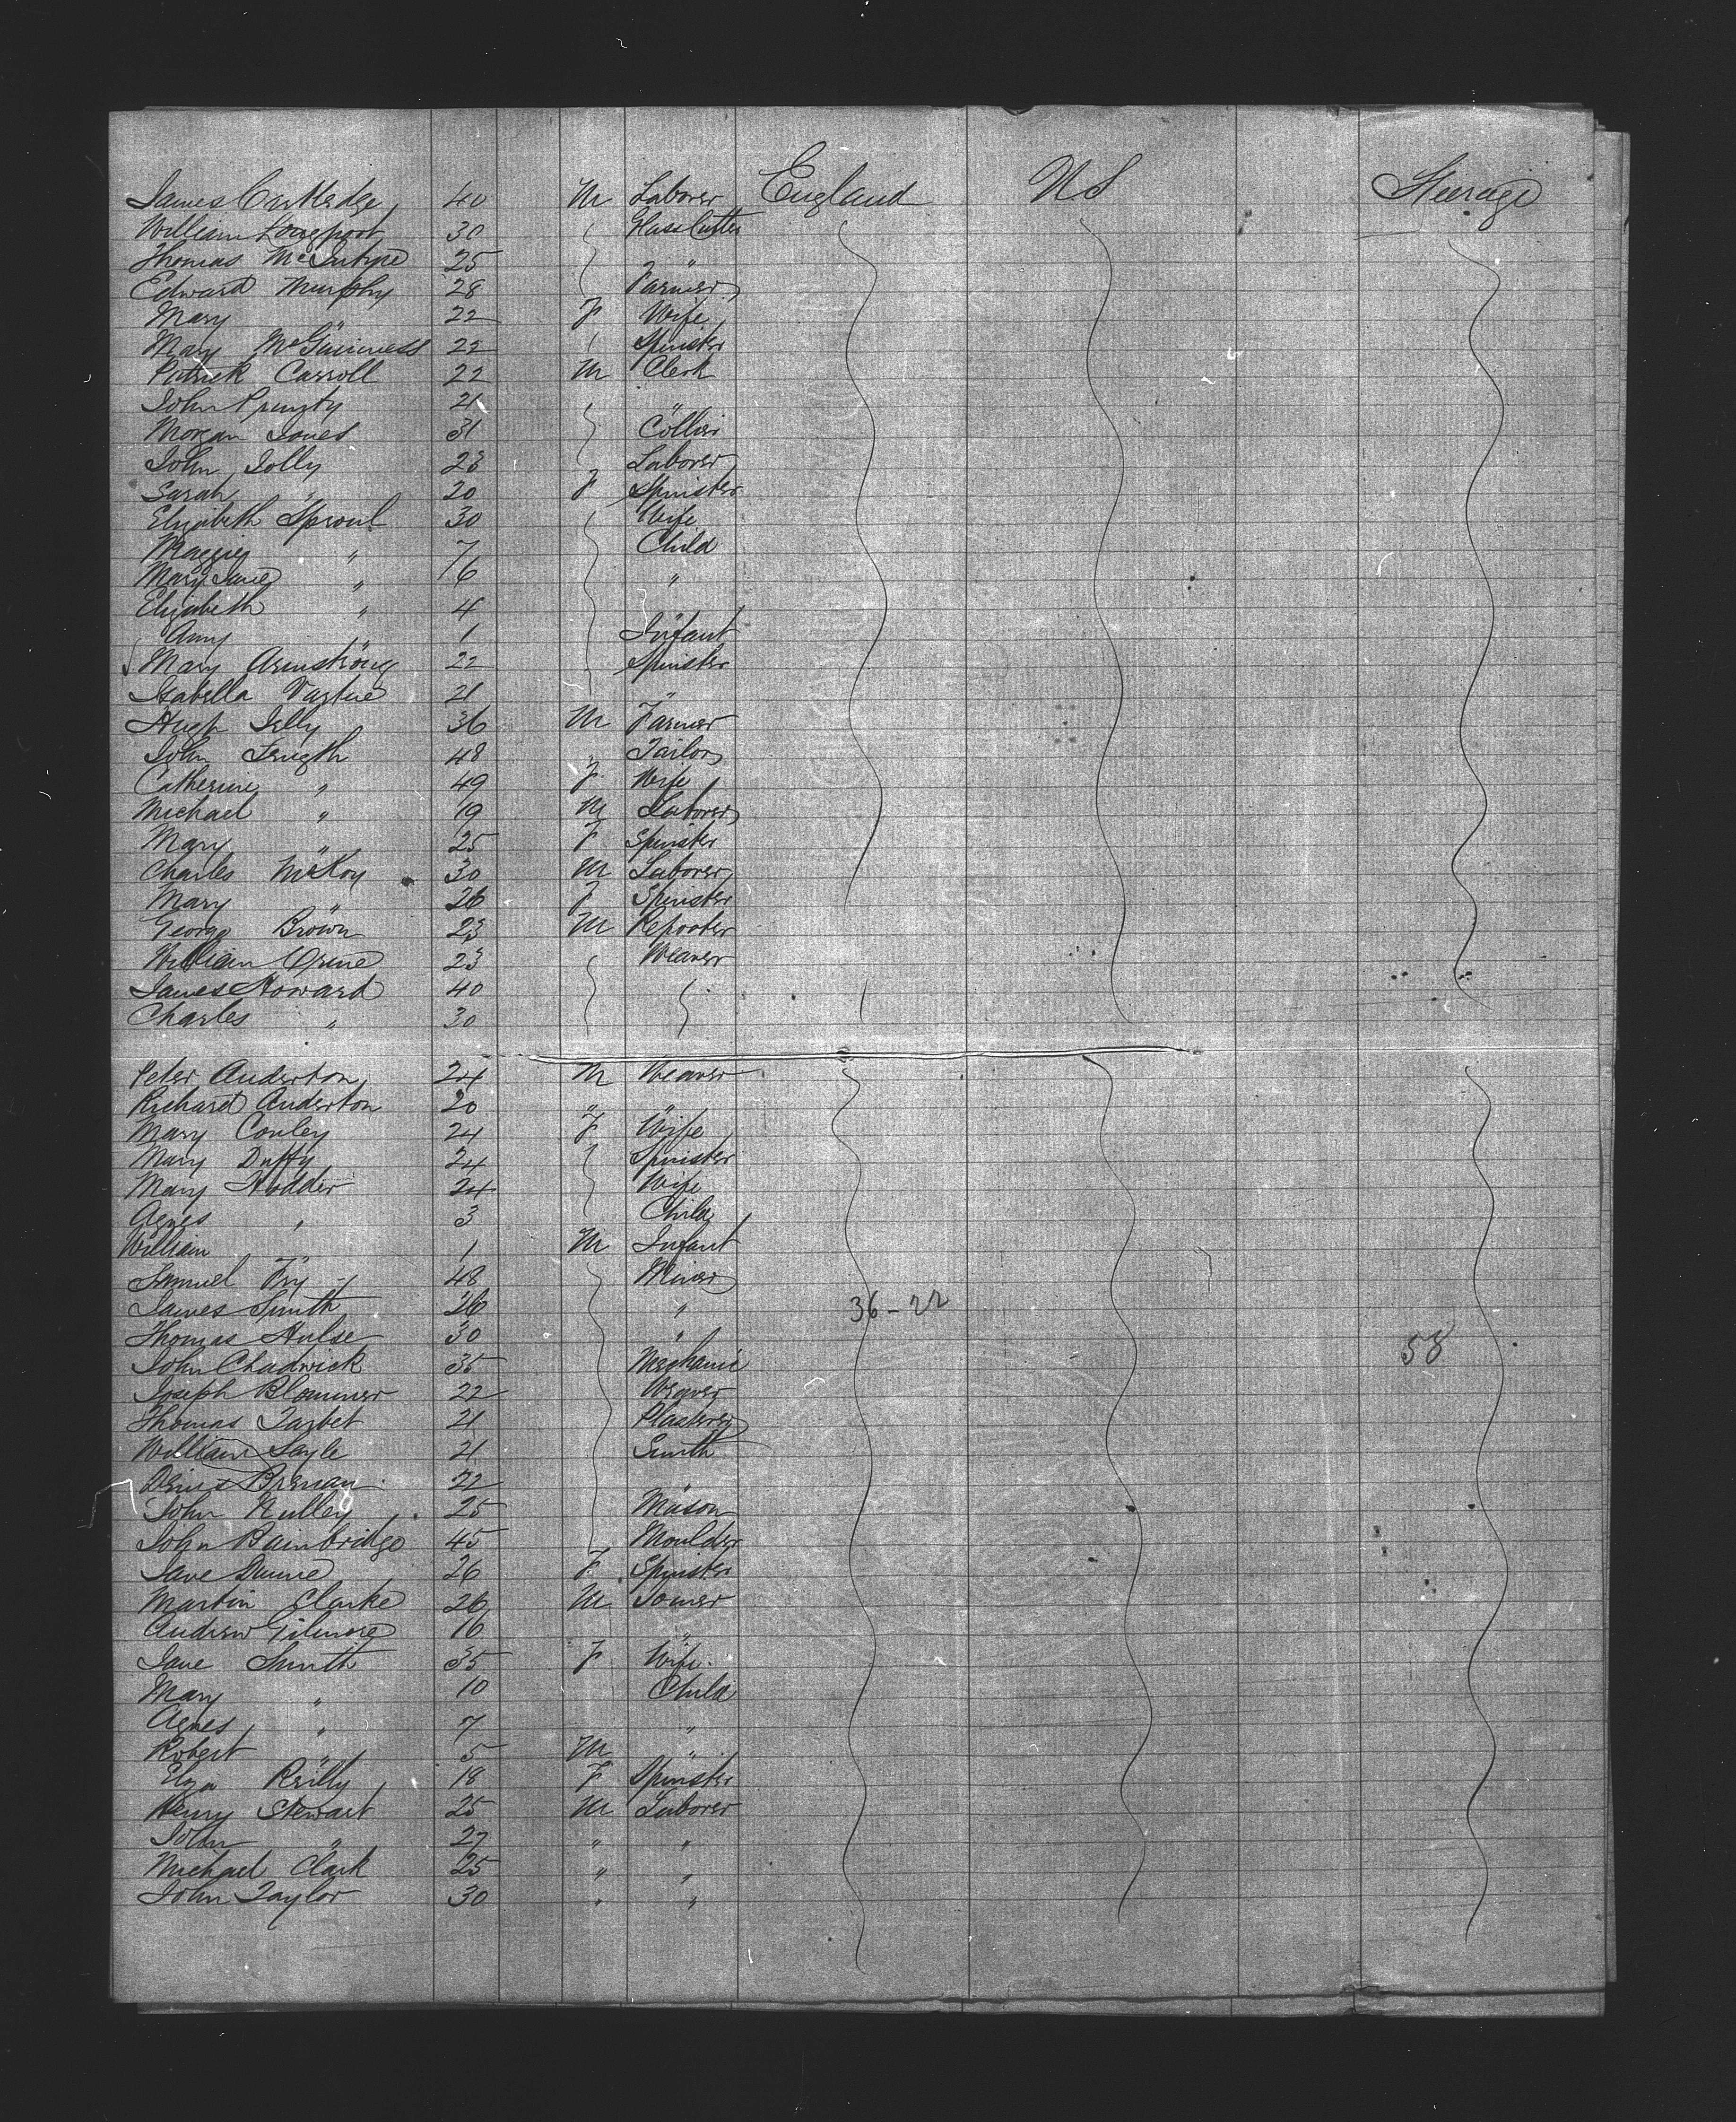 James Cartledge 40 M Laborer England US Steerage
William Longport 30 Glass Cutter
Thomas McIntyre 25 "
Edward Murphy 28 Farmer
Mary " 22 F Wife
Mary McGuinness 22 Spinster
Patrick Carroll 22 M Clerk
John Prunty 21 "
Morgan Jones 31 Collier
John Jolly 23 Laborer
Sarah " 20 F Spinster
Elizabeth Sproul 30 Wife
Maggie " 7 Child
Mary Jane " 6 "
Elizabeth " 4
Amy " 1 Infant
Mary Armstrong 22 Spinster
Isabella Vartue 21 "
Hugh Jelly 36 M Farmer
John 48 " Tailor
Catherine " 49 F Wife
Michael " 19 M Laborer
Mary " 25 F Spinster
Charles McKoy 30 M Laborer
Mary " 26 F Spinster
George Brown 23 M Reporter
William 23 Weaver
James Howard 40
Charles " 30
Peter Anderton 24 M Weaver
Richard Anderton 20 " "
Mary Conley 24 F Wife
Mary Duffy 24 Spinster
Mary Hodder 24 Wife
Agnes " 3 Child
William " 1 M Infant
Samuel Fry 48 Miner
James Smith 26 " 36-22
Thomas Hulse 30 " 58
John Chadwick 35 Mechanic
Joseph Blommer 22 Weaver
Thomas Tarbet 21 Plasterer
William Sayle 21 Smith
Denis Brenan 22 "
John Nulley 25 Mason
John Bainbridge 45 Moulder
Jane Dunne 26 F Spinster
Martin Clarke 26 M Joiner
Andrew Gilmore 16 "
Jane Smith 35 F Wife
Mary " 10 Child
Agnes " 7 "
Robert " 5 M "
Eliza Reilly 18 F Spinster
Henry Stewart 25 M Laborer
John " 27 " "
Michael Clark 25 " "
John Taylor 30 " "